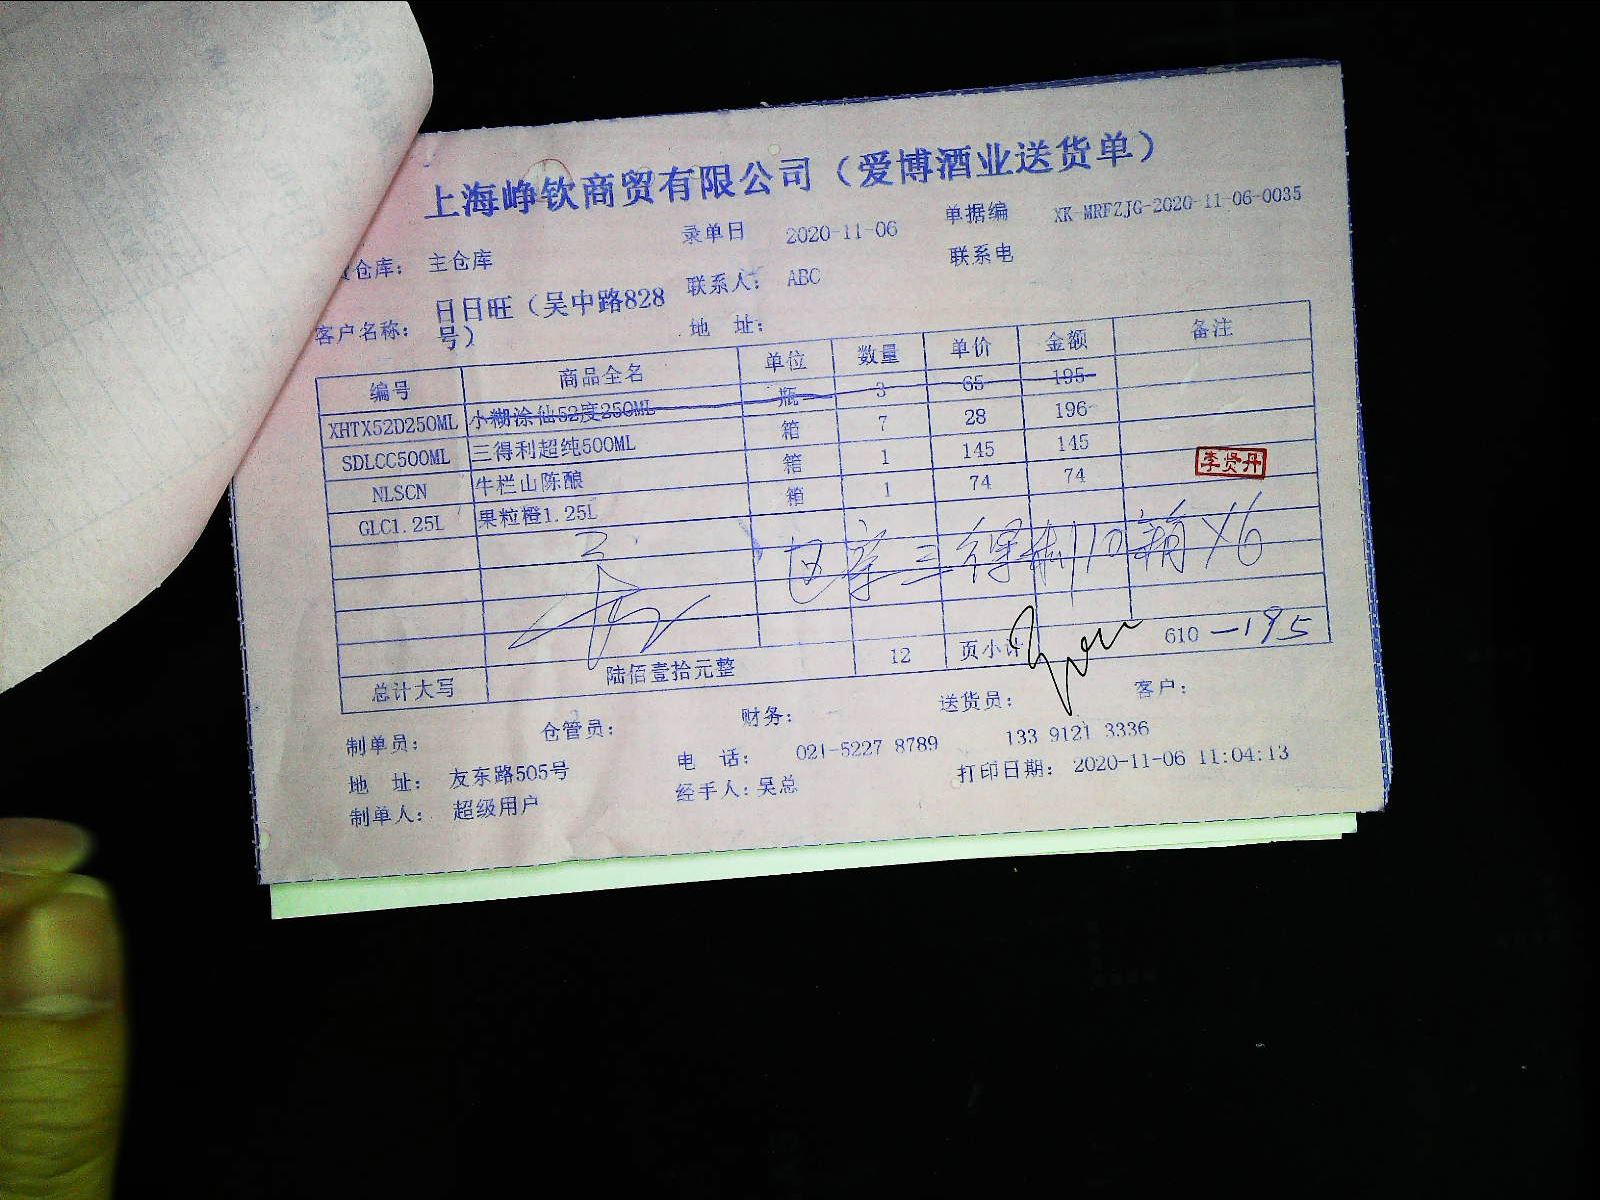 上海峥钦商贸有限公司（爱博酒业送货单）
仓库： 主仓库 录单日 2020-11-06 单据编 XK-MRFZJG-2020-11-06-0035
客户名称： 日日旺（吴中路828号） 联系人： ABC 联系电
地 址：
编号 商品全名 单位 数量 单价 金额 备注
XHTX52D250ML 小糊涂仙52度250ML 瓶 3 65 195
SDLCC500ML 三得利超纯500ML 箱 7 28 196
NLSCN 牛栏山陈酿 箱 1 145 145
GLC1.25L 果粒橙1.25L 箱 1 74 74
李贤丹
三得利10箱×6
总计大写 陆佰壹拾元整 12 页小计 610 -195
制单员： 仓管员： 财务： 送货员： 客户：
地 址： 友东路505号 电 话： 021-5227 8789 133 9121 3336
制单人： 超级用户 经手人：吴总 打印日期： 2020-11-06 11:04:13